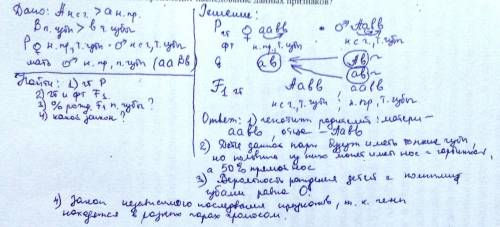 следование данных признаков?
Дано: A н.с г. > a н. пр.
B п. губы > b т. губы
P ♀ н. пр, т. губы · ♂ н с г, т. губы
мать ♂ н. пр, п. губы (aa Bb)
Найти: 1) гт P
2) гт и фт F1
3) % рожд. F1 п. губы ?
4) какой закон ?
Решение:
P гт ♀ aabb · ♂ Aabb
фт н. пр, т. губы н с г, т. губы
G ab Ab
ab
F1 гт Aabb aabb
н с г, т. губы ; н. пр, т. губы
Ответ: 1) генотип родителей: матери –
aabb, отца – Aabb
2) Дети данной пары будут иметь тонкие губы,
но половина из них может иметь нос с горбинкой,
а 50% прямой нос
3) Вероятность рождения детей с полными
губами равна 0.
4) Закон независимого наследования признаков, т. к. гены
находятся в разных парах хромосом.